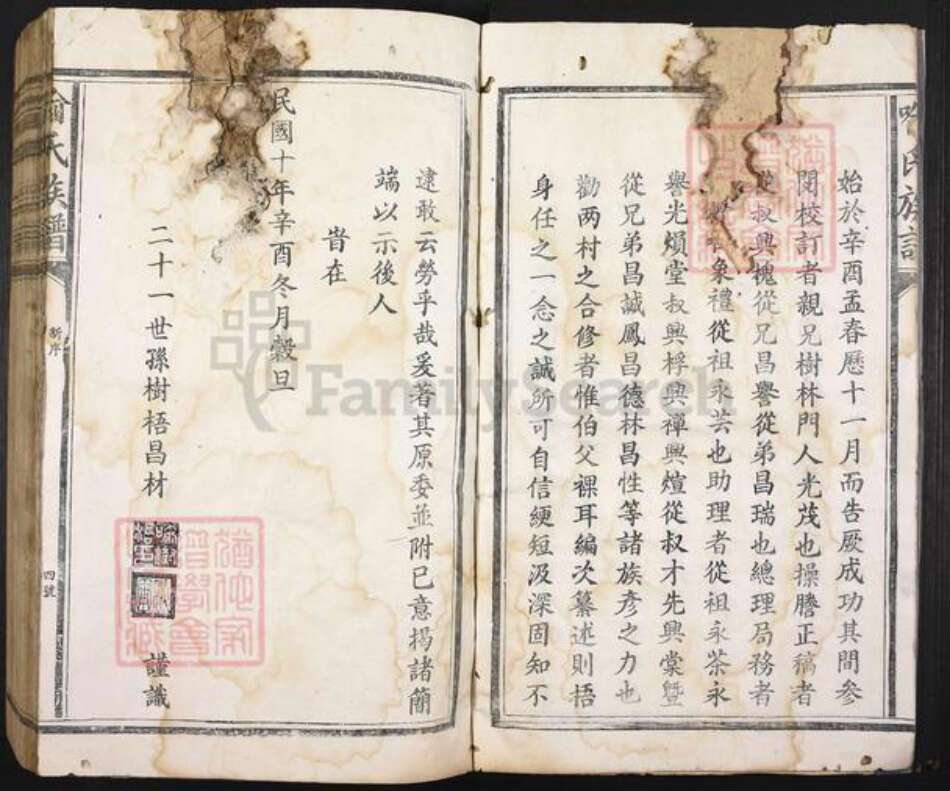 始於辛酉孟春歷十一月而告厥成功其間參
閱校訂者親兄樹林門人光茂也操謄正稿者
從叔興槐從兄昌譽從弟昌瑞也總理局務者
象禮從祖永芸也助理者從祖永茶永
譽光熉堂叔興桴興禪興煊從叔才先興棠暨
從兄弟昌誠鳳昌德林昌性等諸族彥之力也
勸两村之合修者惟伯父裸耳編次纂述則梧
身任之一念之誠所可自信綆短汲深固知不
逮敢云勞乎哉爰著其原委並附已意揭諸簡
端以示後人
旹在
民國十年辛酉冬月穀旦
二十一世孫樹梧昌材
謹識
氏族譜
新序
四號
氏族譜
FamilySearch